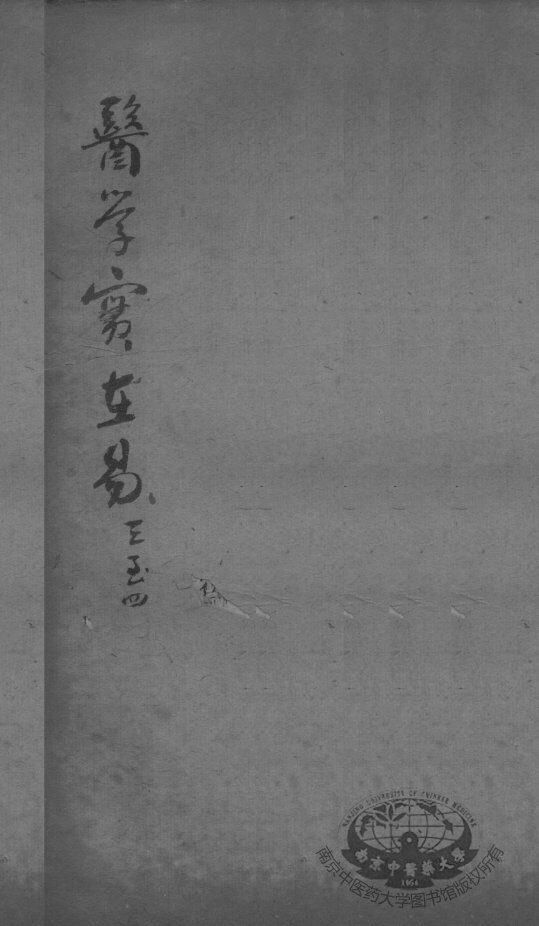 醫学實在易 三至四
NANJING UNIVERSITY OF CHINESE MEDICINE
南京中醫藥大學
1954
南京中医药大学图书馆版权所有